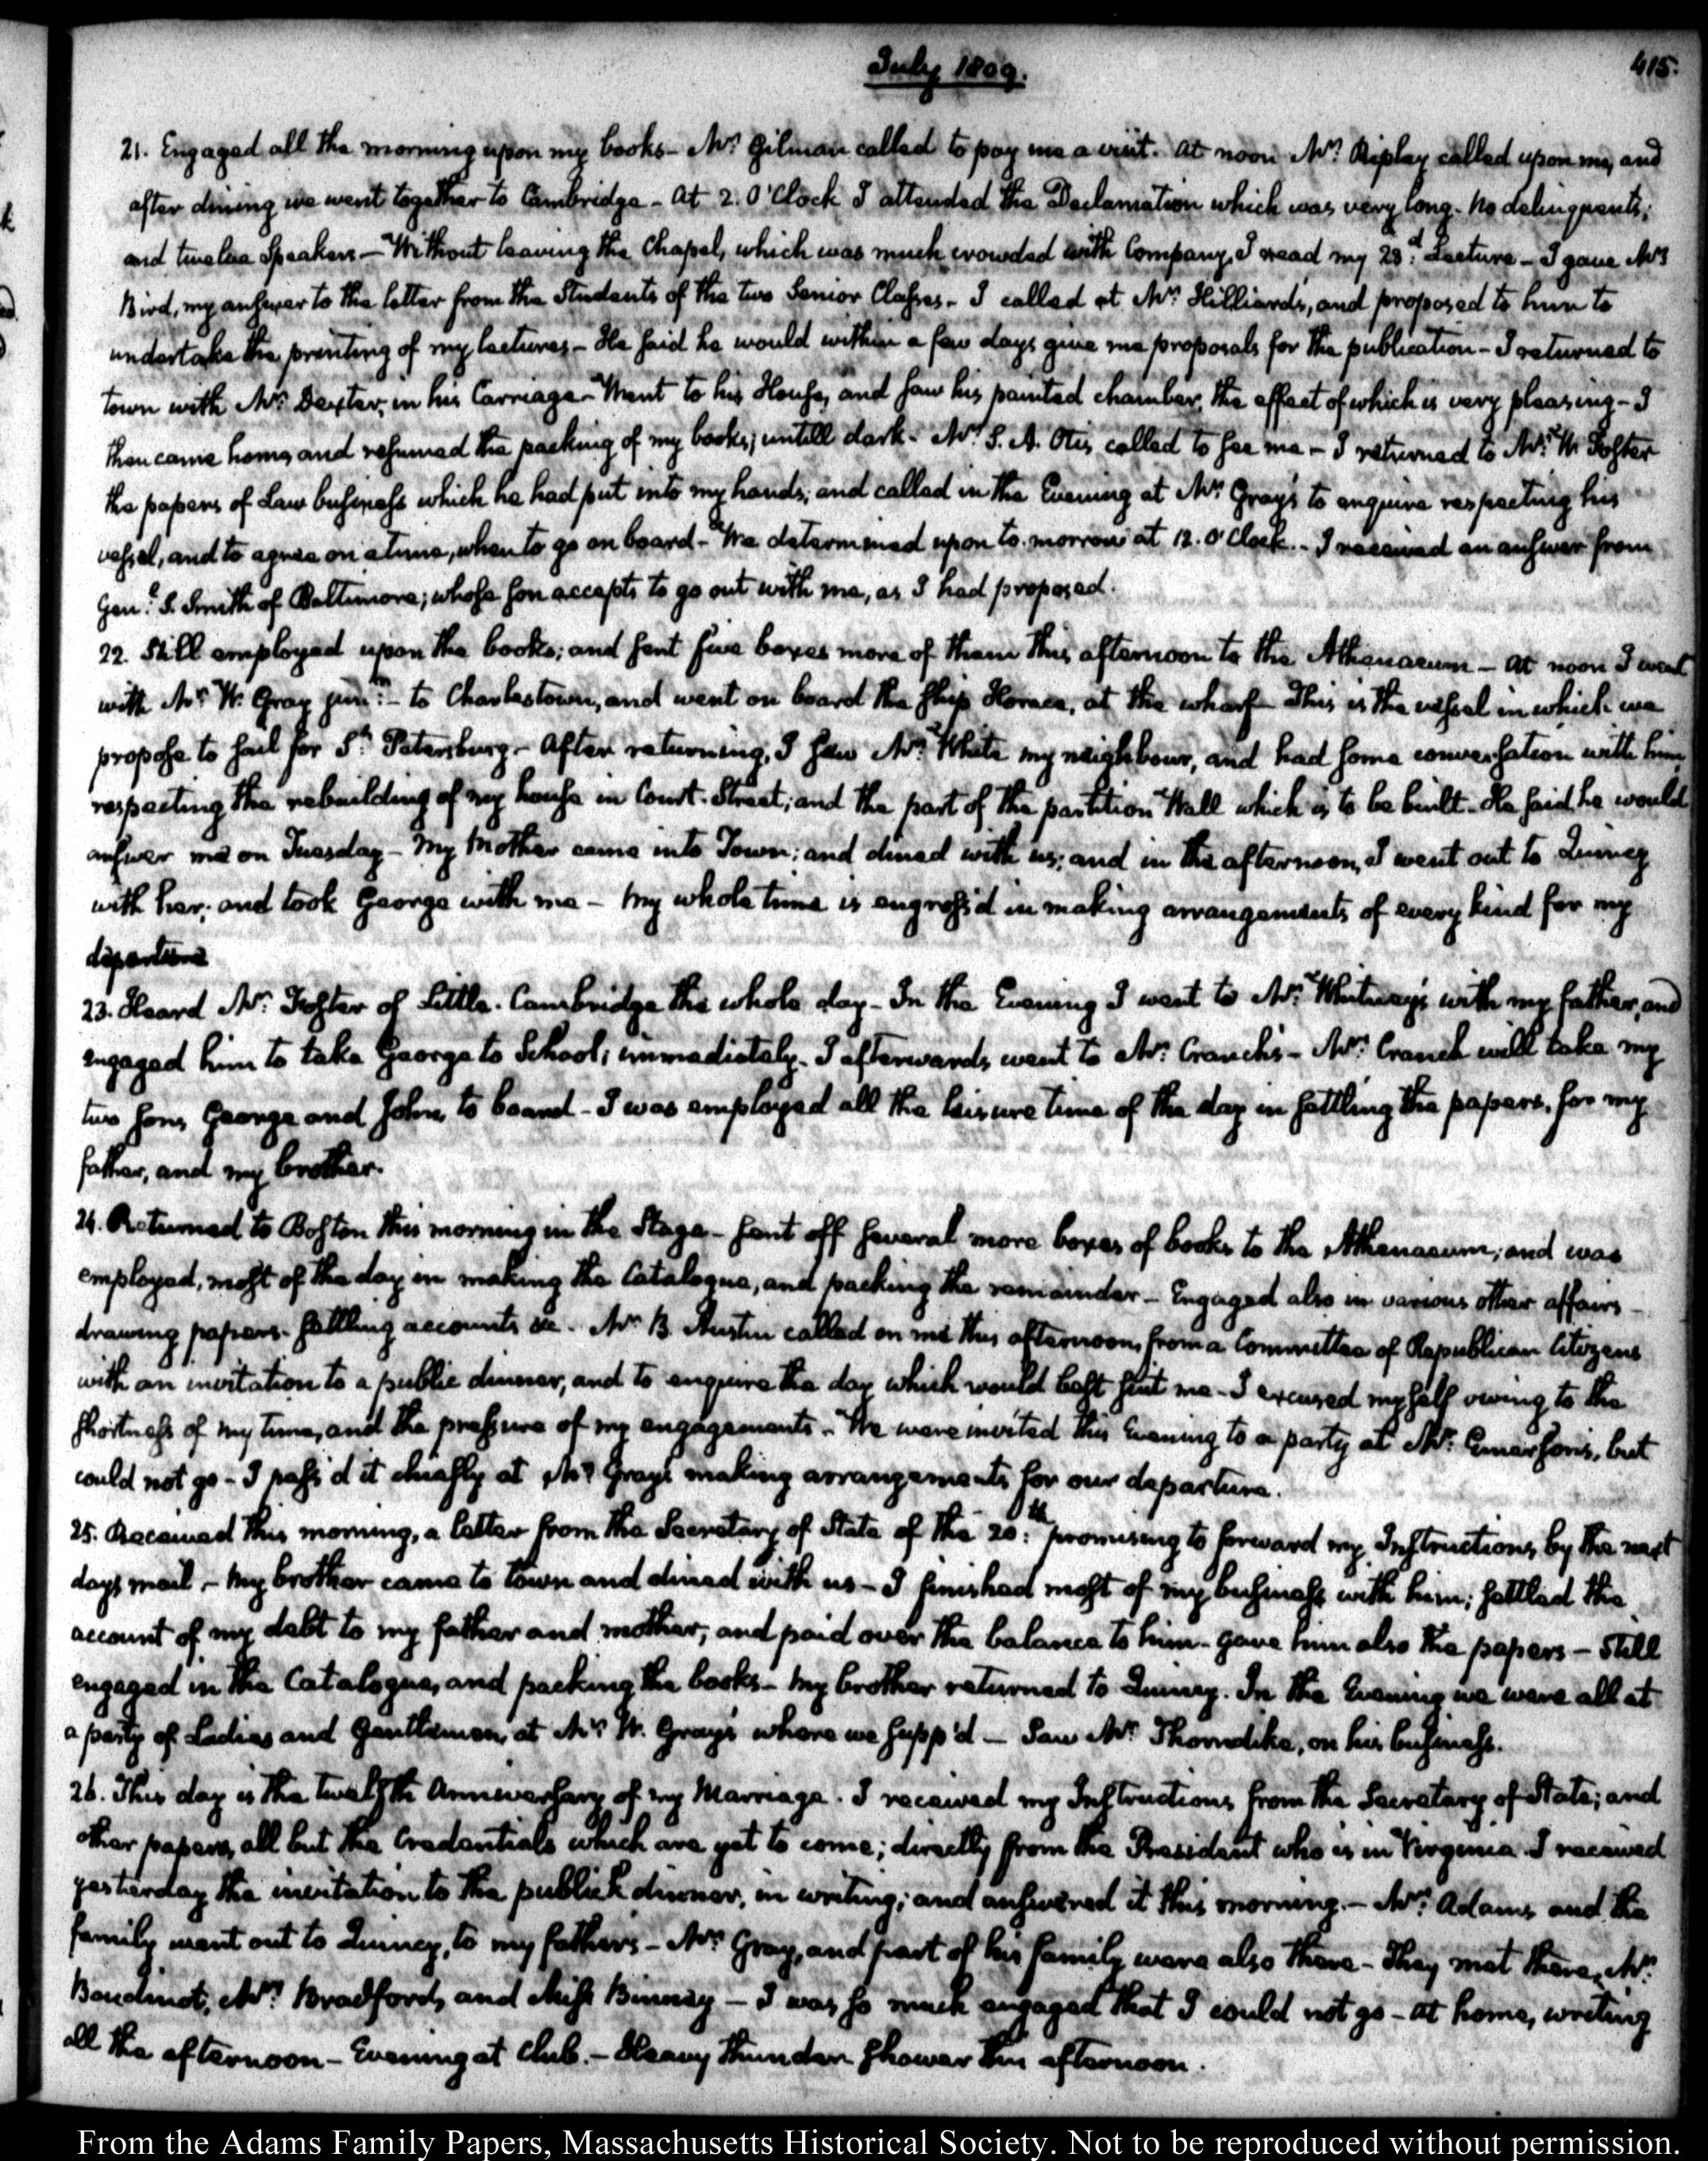 July 1809.
415.
21. Engaged all the morning upon my books - Mr. Gilman called to pay me a visit. At noon Mr. Ripley called upon me, and
after dining we went together to Cambridge - At 2. O'Clock I attended the Declamation which was very long. No delinquents;
and twelve Speakers - Without leaving the Chapel, which was much crowded with Company, I read my 23d: Lecture - I gave Mr.
Bird, my answer to the letter from the Students of the two Senior Classes - I called at Mr. Hilliard's, and proposed to him to
undertake the printing of my lectures - He said he would within a few days give me proposals for the publication - I returned to
town with Mr. Dexter, in his Carriage - Went to his House, and saw his painted chamber, the effect of which is very pleasing - I
then came home, and resumed the packing of my books; untill dark - Mr. S. A. Otis, called to see me - I returned to Mr. W. Foster
the papers of Law business which he had put into my hands; and called in the Evening at Mr. Gray's to enquire respecting his
vessel, and to agree on a time, when to go on board - We determined upon to-morrow at 12. O'Clock. - I received an answer from
Genl: S. Smith of Baltimore; whose son accepts to go out with me, as I had proposed.
22. Still employed upon the books; and sent five boxes more of them this afternoon to the Athenaeum - At noon I went
with Mr. W. Gray junr: - to Charlestown, and went on board the ship Horace, at the wharf - This is the vessel in which we
propose to sail for St. Petersburg - After returning, I saw Mr. White my neighbour, and had some conversation with him
respecting the rebuilding of my house in Court-Street; and the part of the partition Wall which is to be built - He said he would
answer me on Tuesday - My Mother came into Town; and dined with us; and in the afternoon, I went out to Quincy
with her; and took George with me - My whole time is engross'd in making arrangements of every kind for my
departure
23. Heard Mr. Foster of Little-Cambridge the whole day - In the Evening I went to Mr. Whitney's with my father, and
engaged him to take George to School; immediately. I afterwards went to Mr. Cranch's - Mrs. Cranch will take my
two sons George and John, to board - I was employed all the leisure time of the day in settling the papers, for my
father, and my brother.
24. Returned to Boston this morning in the Stage - sent off several more boxes of books to the Athenaeum; and was
employed, most of the day in making the Catalogue, and packing the remainder - Engaged also in various other affairs -
drawing papers - settling accounts &c - Mr. B. Austin called on me this afternoon, from a Committee of Republican Citizens
with an invitation to a public dinner, and to enquire the day which would best suit me - I excused myself owing to the
shortness of my time, and the pressure of my engagements - We were invited this Evening to a party at Mr. Emerson's, but
could not go - I pass'd it chiefly at Mr. Gray's making arrangements for our departure.
25. Received this morning, a letter from the Secretary of State of the 20th: promising to forward my Instructions, by the next
days mail - My brother came to town and dined with us - I finished most of my business with him; settled the
account of my debt to my father and mother, and paid over the balance to him - gave him also the papers - Still
engaged in the Catalogue, and packing the books - My brother returned to Quincy. In the Evening we were all at
a party of Ladies and Gentlemen, at Mr. W. Gray's where we supp'd - Saw Mr. Thorndike, on his business.
26. This day is the twelfth Anniversary of my Marriage. I received my Instructions from the Secretary of State; and
other papers, all but the Credentials which are yet to come; directly from the President who is in Virginia. I received
yesterday the invitation to the publick dinner, in writing; and answered it this morning. - Mrs. Adams and the
family went out to Quincy, to my father's - Mr. Gray, and part of his family were also there - They met there, Mr.
Boudinot, Mrs. Bradford, and Miss Binney - I was so much engaged that I could not go - at home, writing
all the afternoon - Evening at Club. - Heavy thunder shower this afternoon.
From the Adams Family Papers, Massachusetts Historical Society. Not to be reproduced without permission.